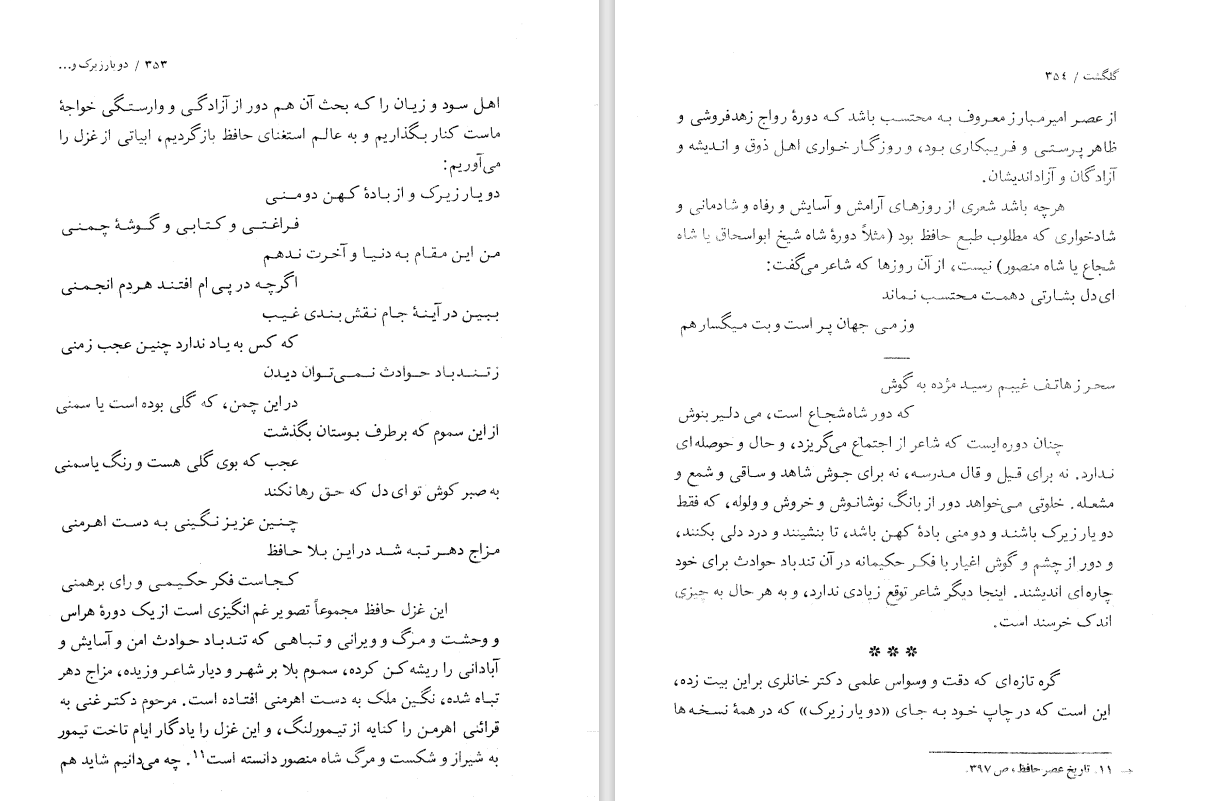 ۳۵۳ / دو یار زیرک و...
اهل سود و زیان را که بحث آن هم دور از آزادگی و وارستگی خواجهٔ
ماست کنار بگذاریم و به عالم استغنای حافظ بازگردیم، ابیاتی از غزل را
می‌آوریم:
دو یار زیرک و از بادهٔ کهن دو منی
فراغتی و کتابی و گوشهٔ چمنی
من این مقام به دنیا و آخرت ندهم
اگرچه در پی ام افتند هردم انجمنی
ببین در آینهٔ جام نقش بندی غیب
که کس به یاد ندارد چنین عجب زمنی
ز تندباد حوادث نمی‌توان دیدن
در این چمن، که گلی بوده است یا سمنی
از این سموم که بر طرف بوستان بگذشت
عجب که بوی گلی هست و رنگ یاسمنی
به صبر کوش تو ای دل که حق رها نکند
چنین عزیز نگینی به دست اهرمنی
مزاج دهر تبه شد در این بلا حافظ
کجاست فکر حکیمی و رای برهمنی
این غزل حافظ مجموعاً تصویر غم انگیزی است از یک دورهٔ هراس
و وحشت و مرگ و ویرانی و تباهی که تندباد حوادث امن و آسایش و
آبادانی را ریشه کن کرده، سموم بلا بر شهر و دیار شاعر وزیده، مزاج دهر
تباه شده، نگین ملک به دست اهرمنی افتاده است. مرحوم دکتر غنی به
قرائنی اهرمن را کنایه از تیمورلنگ، و این غزل را یادگار ایام تاخت تیمور
به شیراز و شکست و مرگ شاه منصور دانسته است۱۱. چه می‌دانیم شاید هم
گلگشت / ۳۵۴
از عصر امیر مبارز معروف به محتسب باشد که دورهٔ رواج زهدفروشی و
ظاهر پرستی و فریبکاری بود، و روزگار خواری اهل ذوق و اندیشه و
آزادگان و آزاداندیشان.
هرچه باشد شعری از روزهای آرامش و آسایش و رفاه و شادمانی و
شادخواری که مطلوب طبع حافظ بود (مثلاً دورهٔ شاه شیخ ابواسحاق یا شاه
شجاع یا شاه منصور) نیست، از آن روزها که شاعر می‌گفت:
ای دل بشارتی دهمت محتسب نماند
وز می جهان پر است و بت میگسار هم
سحر ز هاتف غیبم رسید مژده به گوش
که دور شاه شجاع است، می دلیر بنوش
چنان دوره ایست که شاعر از اجتماع می‌گریزد، و حال و حوصله ای
ندارد. نه برای قیل و قال مدرسه، نه برای جوش شاهد و ساقی و شمع و
مشعله. خلوتی می‌خواهد دور از بانگ نوشانوش و خروش و ولوله، که فقط
دو یار زیرک باشند و دو منی بادهٔ کهن باشد، تا بنشینند و درد دلی بکنند،
و دور از چشم و گوش اغیار با فکر حکیمانه در آن تندباد حوادث برای خود
چاره ای اندیشند. اینجا دیگر شاعر توقع زیادی ندارد، و به هر حال به چیزی
اندک خرسند است.
* * *
گره تازه ای که دقت و وسواس علمی دکتر خانلری بر این بیت زده،
این است که در چاپ خود به جای «دو یار زیرک» که در همهٔ نسخه ها
۱۱. تاریخ عصر حافظ، ص ۳۹۷.